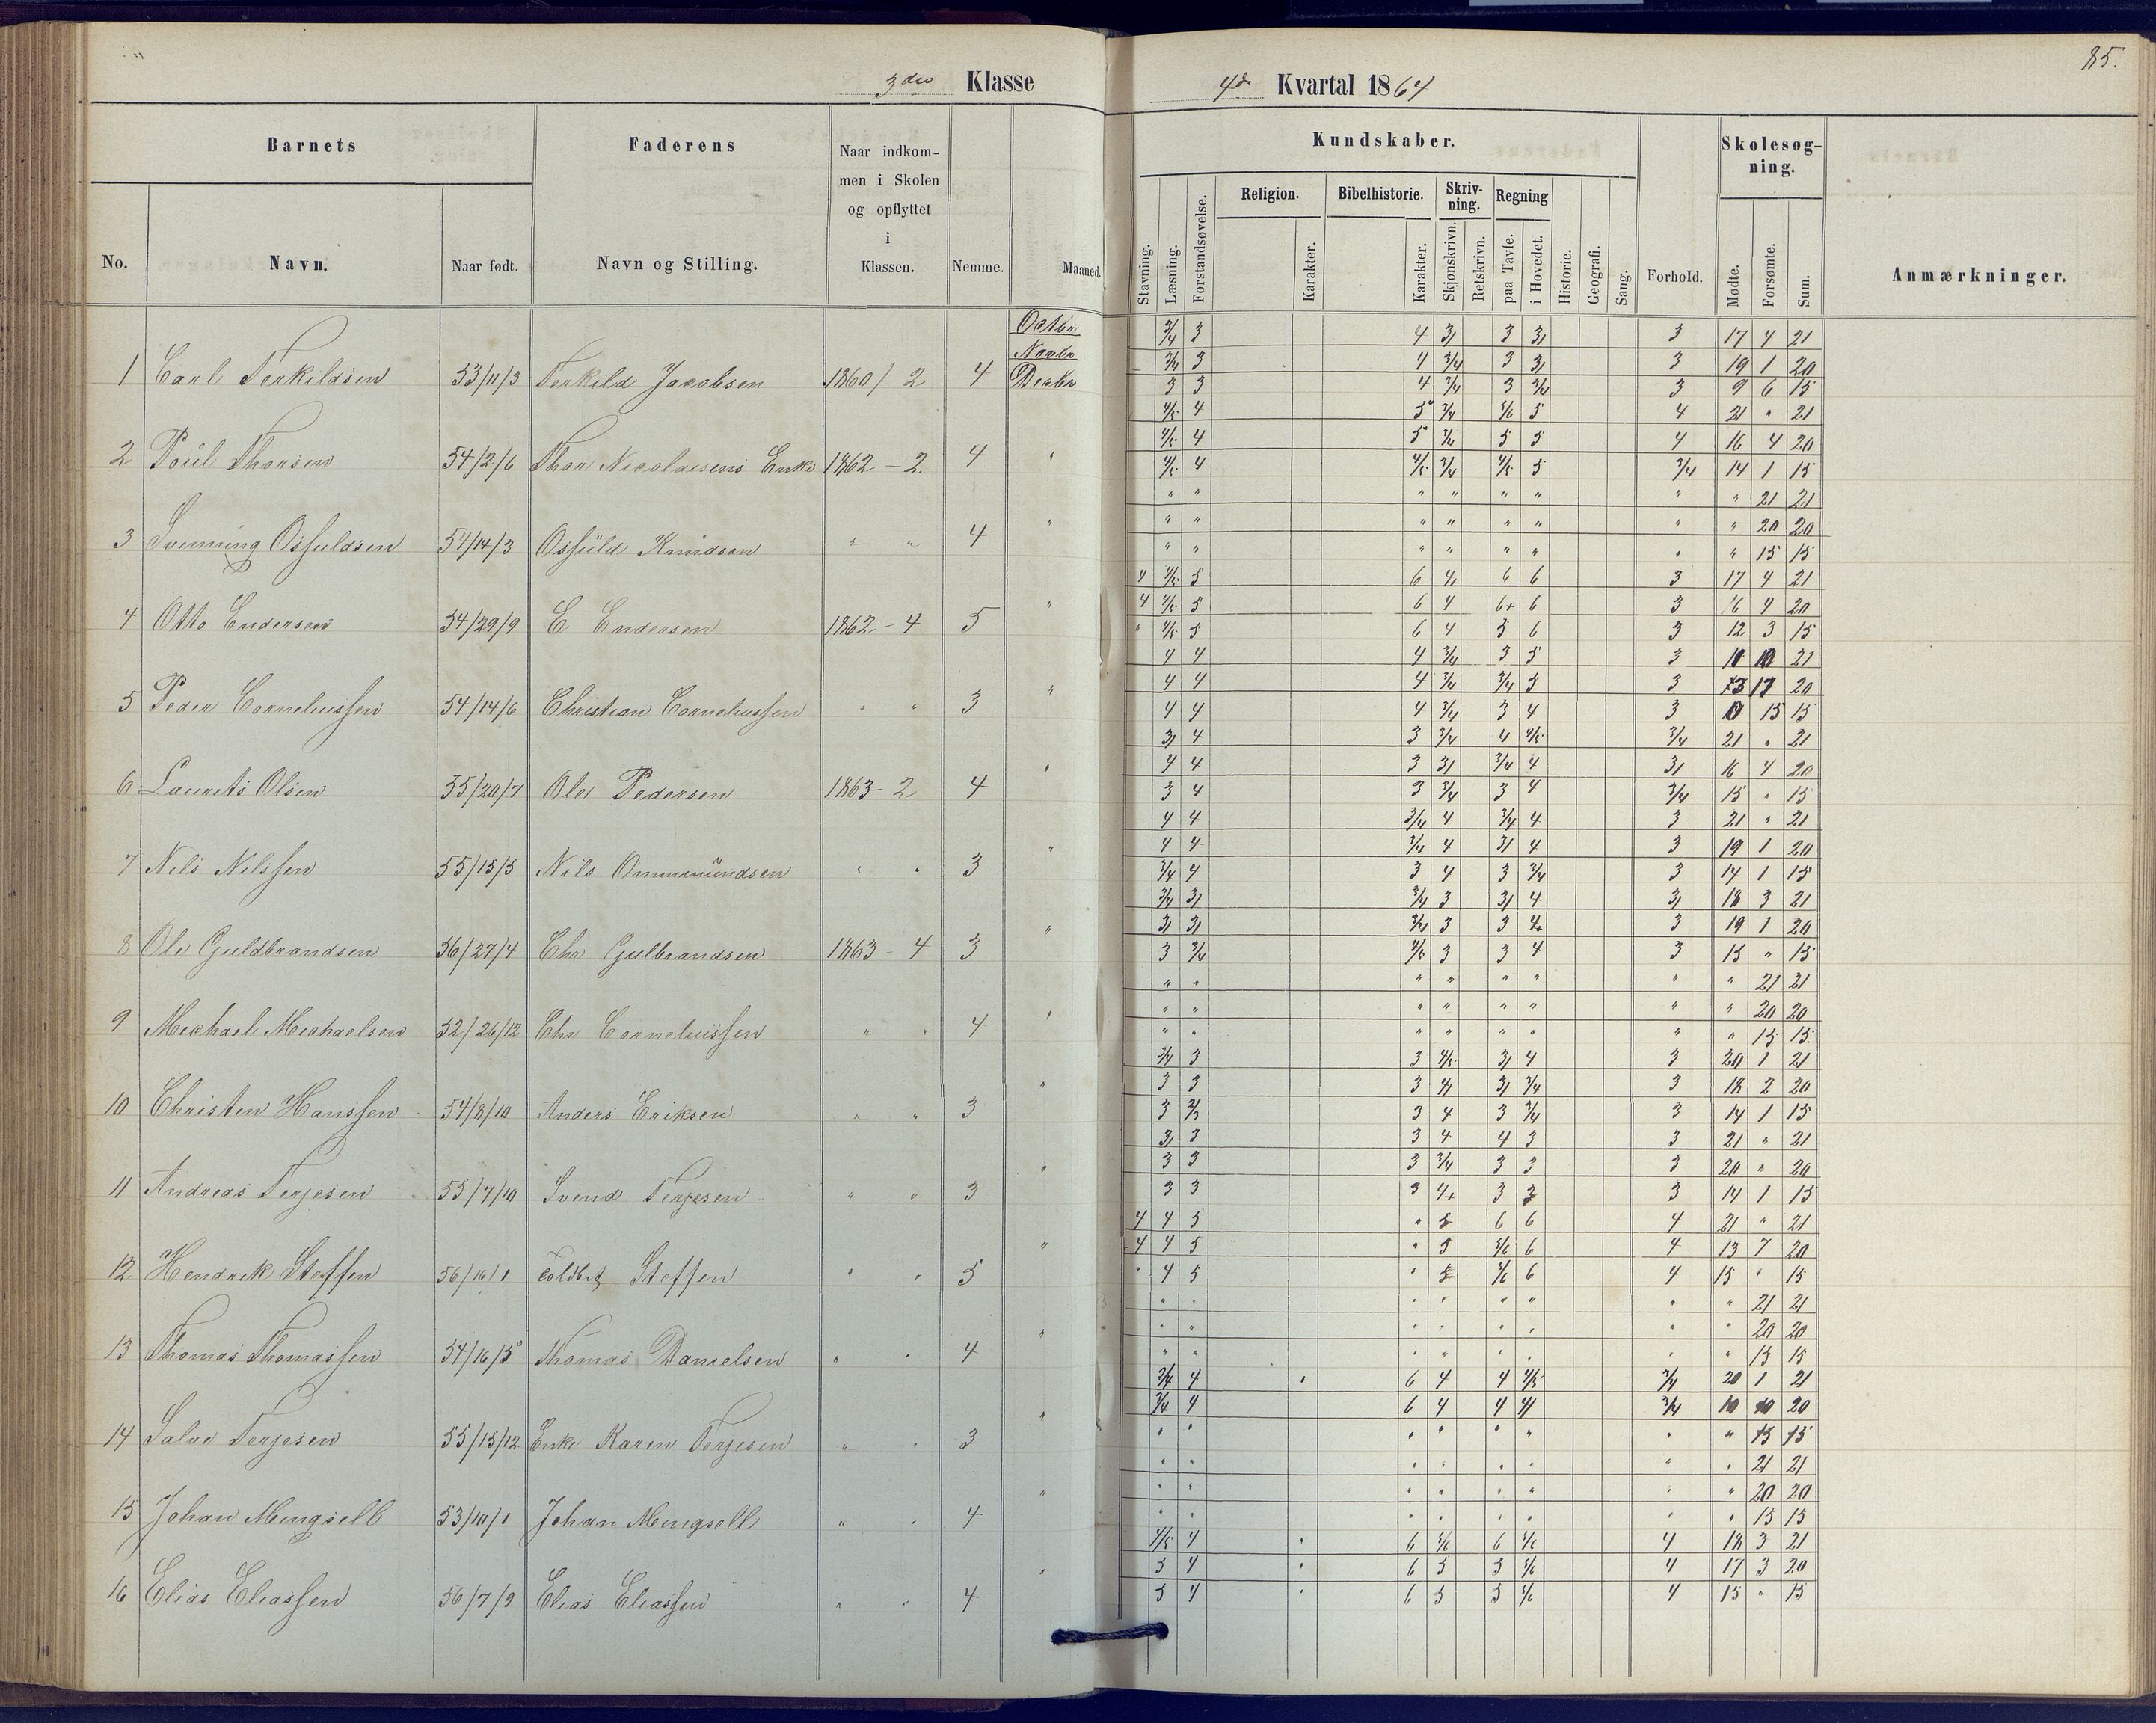 85.
3die Klasse
4de Kvartal 1864
Barnets
Faderens
Naar indkom-
men i Skolen
og opflyttet
i
Klassen.
No.
Navn.
Naar født.
Navn og Stilling.
Nemme.
Maaned.
Kundskaber.
Skolesøg-
ning.
Religion.
Bibelhistorie.
Skriv-
ning.
Regning
Stavning.
Læsning.
Forstandsøvelse.
Karakter.
Karakter.
Skjønskrivn.
Retskrivn.
paa Tavle.
i Hovedet.
Historie.
Geografi.
Sang.
Forhold.
Mødte.
Forsømte.
Sum.
Anmærkninger.
Octbr
Novbr
1 Carl Terkildsen 53/11/3 Terkild Jacobsen 1860/2 4 Decbr
2 Poul Thorsen 54/2/6 Thor Nicolaisens Enke 1862-2 4 "
3 Svenning Osfuldsen 54/14/3 Osfuld Knudsen " " 4 "
4 Otto Endersen 54/29/9 E Endersen 1862-4 5 "
5 Peder Corneliussen 54/14/6 Christian Corneliussen " " 3 "
6 Laurits Olsen 55/20/7 Ole Pedersen 1863-2 4 "
7 Nils Nilssen 55/15/5 Nils Ommundsen " " 3 "
8 Ole Guldbrandsen 56/27/4 Chr Gulbrandsen 1863-4 3 "
9 Michael Michaelsen 52/26/12 Chr Corneliussen " " 4 "
10 Christen Hanssen 54/8/10 Anders Eriksen " " 3 "
11 Andreas Terjesen 55/7/10 Svend Terjesen " " 3 "
12 Hendrik Steffen 56/16/1 Toldbet Steffen " " 5 "
13 Thomas Thomassen 54/16/5 Thomas Danielsen " " 4 "
14 Salve Terjesen 55/15/12 Enke Karen Terjesen " " 3 "
15 Johan Mengsell 53/10/1 Johan Mengsell " " 4 "
16 Elias Eliassen 56/7/9 Elias Eliassen " " 4 "
3/4 3 4 3 3 3 3 17 4 21
3/4 3 4 3/4 3 3 3 19 1 20
3 3 4 3/4 3 3/4 3 9 6 15
4/5 4 5 3/4 5/6 5 4 21 " 21
4/5 4 5 3/4 5 5 4 16 4 20
4/5 4 4/5 3/4 4/5 5 3/4 14 1 15
" " " " " " " " 21 21
" " " " " " " " 20 20
" " " " " " " " 15 15
4 4/5 5 6 4 6 6 3 17 4 21
4 4/5 5 6 4 6+ 6 3 16 4 20
" 4/5 5 6 4 5 6 3 12 3 15
4 4 4 3/4 3 5 3 11 10 21
4 4 4 3/4 3/4 5 3 3 17 20
4 4 4 3/4 3 4 3 0 15 15
3 4 3 3/4 4 4/5 3/4 21 " 21
4 4 3 3 3/4 4 3 16 4 20
3 4 3 3/4 3 4 3/4 15 " 15
4 4 3/4 4 3/4 4 3 21 " 21
4 4 3/4 4 3 4 3 19 1 20
3/4 4 3 4 3 3/4 3 14 1 15
3/4 3 3/4 3 3 4 3 18 3 21
3 3 3/4 3 3 4+ 3 19 1 20
3 3/4 4/5 3 3 4 3 15 " 15
" " " " " " " " 21 21
" " " " " " " " 20 20
" " " " " " " " 15 15
3/4 3 3 4/5 3 4 3 20 1 21
3 3 3 4 3 3/4 3 18 2 20
3 2/3 3 4 3 3/4 3 14 1 15
3 3 3 4 4 3 3 21 " 21
3 3 3 3/4 3 3 3 20 " 20
3 3 3 4+ 3 3 3 14 1 15
4 4 5 " 5 6 6 4 21 " 21
4 4 5 " 5 5/6 6 4 13 7 20
" 4 5 " 5 5/6 6 4 15 " 15
" " " " " " " " 21 21
" " " " " " " " 20 20
" " " " " " " " 15 15
3/4 4 " 6 4 4 4/5 3/4 20 1 21
3/4 4 6 4 4 4 3/4 10 10 20
" " " " " " " " 15 15
" " " " " " " " 21 21
" " " " " " " " 20 20
" " " " " " " " 15 15
4/5 4 " 6 5/6 6 5/6 4 18 3 21
5 4 " 6 5 5 5/6 4 17 3 20
5 4 " 6 5 5 5/6 4 15 " 15